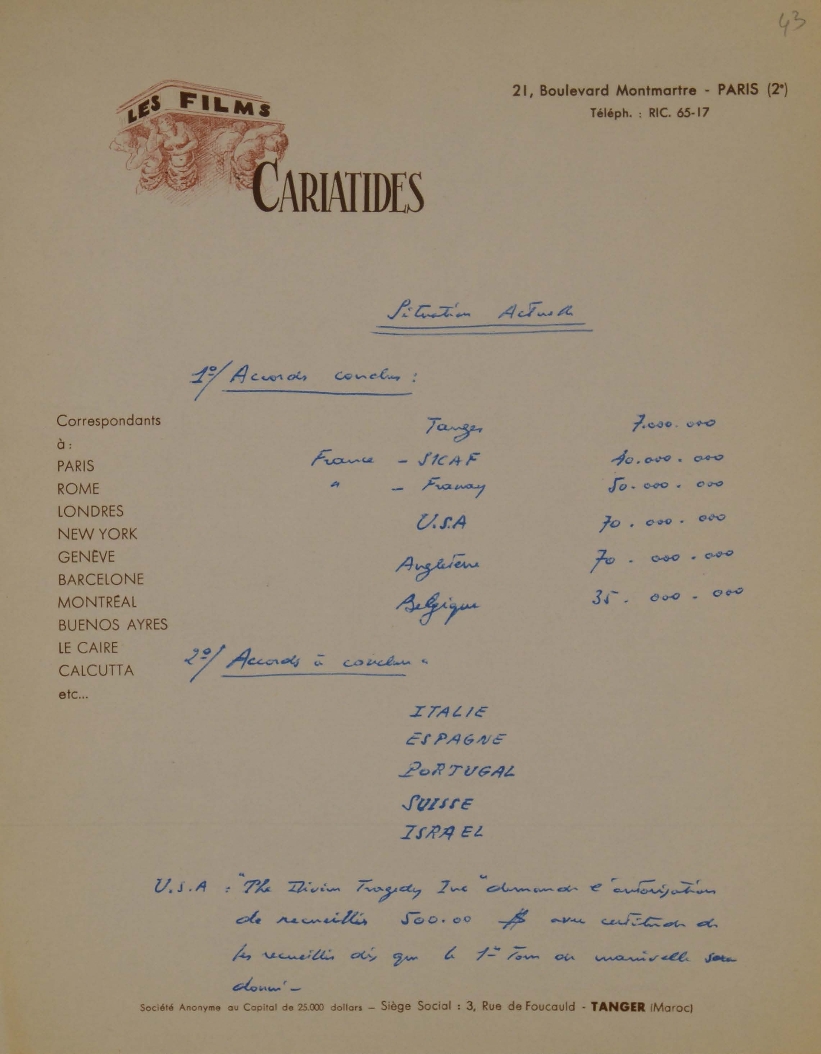 43
LES FILMS
CARIATIDES
21, Boulevard Montmartre - PARIS (2e)
Téléph. : RIC. 65-17
Situation Actuelle
1º/ Accords conclus :
Tanger 7.000.000
France - SICAF 40.000.000
" - Franay 50.000.000
U.S.A 70.000.000
Angleterre 70.000.000
Belgique 35.000.000
Correspondants
à :
PARIS
ROME
LONDRES
NEW YORK
GENÈVE
BARCELONE
MONTRÉAL
BUENOS AYRES
LE CAIRE
CALCUTTA
etc...
2º/ Accords à conclure
ITALIE
ESPAGNE
PORTUGAL
SUISSE
ISRAEL
U.S.A : "The Divine Tragedy Inc" demande l'autorisation
de recueillir 500.00 $ avec certitude de
les recueillir dès que le 1er Tour de manivelle sera
donné -
Société Anonyme au Capital de 25.000 dollars - Siège Social : 3, Rue de Foucauld - TANGER (Maroc)